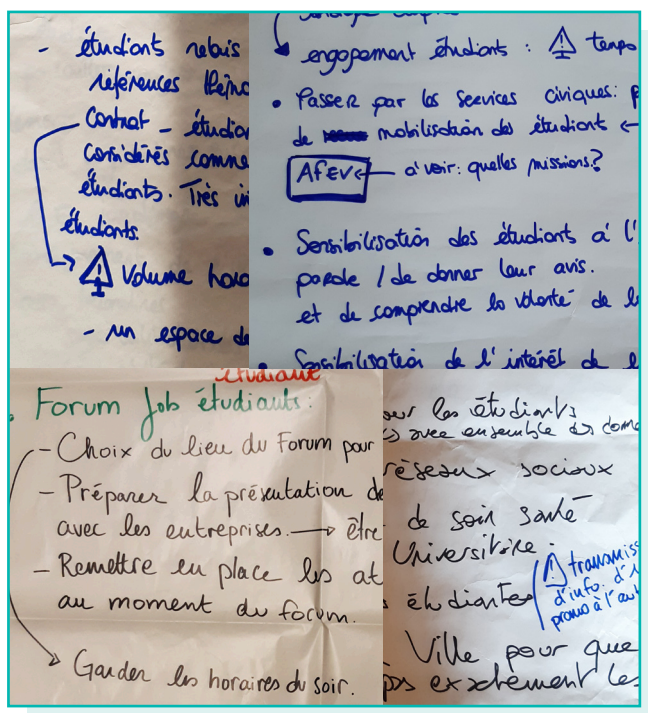 - étudiants relais
références
Contrat - étudian
considérés comme
étudiants. Très in
étudiants.
Volume hora
- un espace de
engagement étudiants : temps
• Passer par les services civiques: p
de mobilisation des étudiants ←
AFEV ← à voir: quelles missions?
• Sensibilisation des étudiants à l'
parole / de donner leur avis.
et de comprendre la volonté de l
• Sensibilisation de l'intérêt de l
étudiant
• Forum Job étudiants:
- Choix du lieu du Forum pour
- Préparer la présentation de
avec les entreprises. → être
- Remettre en place les at
au moment du forum.
→ Garder les horaires du soir.
sur les étudiants
avec ensemble des
réseaux sociaux
de soin santé
Universitaire.
étudiantes
transmiss
d'info. d'
promo à l'aut
Ville pour que
pas exactement les